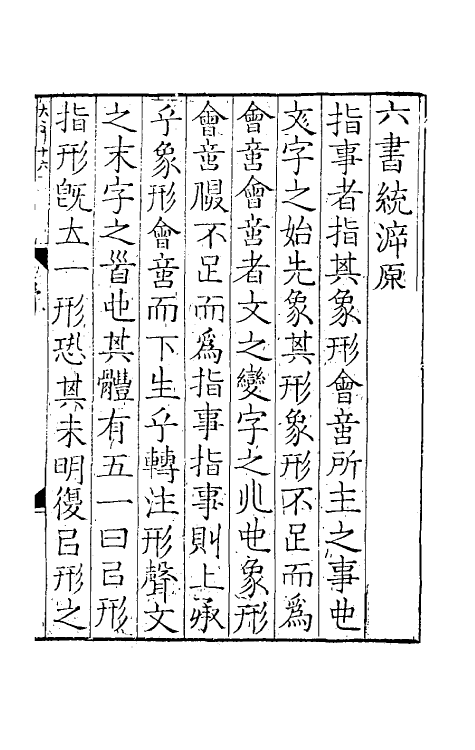 六書統溯原
指事者指其象形會意所主之事也
文字之始先象其形象形不足而爲
會意會意者文之變字之兆也象形
會意假不足而爲指事指事則上承
乎象形會意而下生乎轉注形聲文
之末字之首也其體有五一曰㠯形
指形旣立一形恐其未明復㠯形之